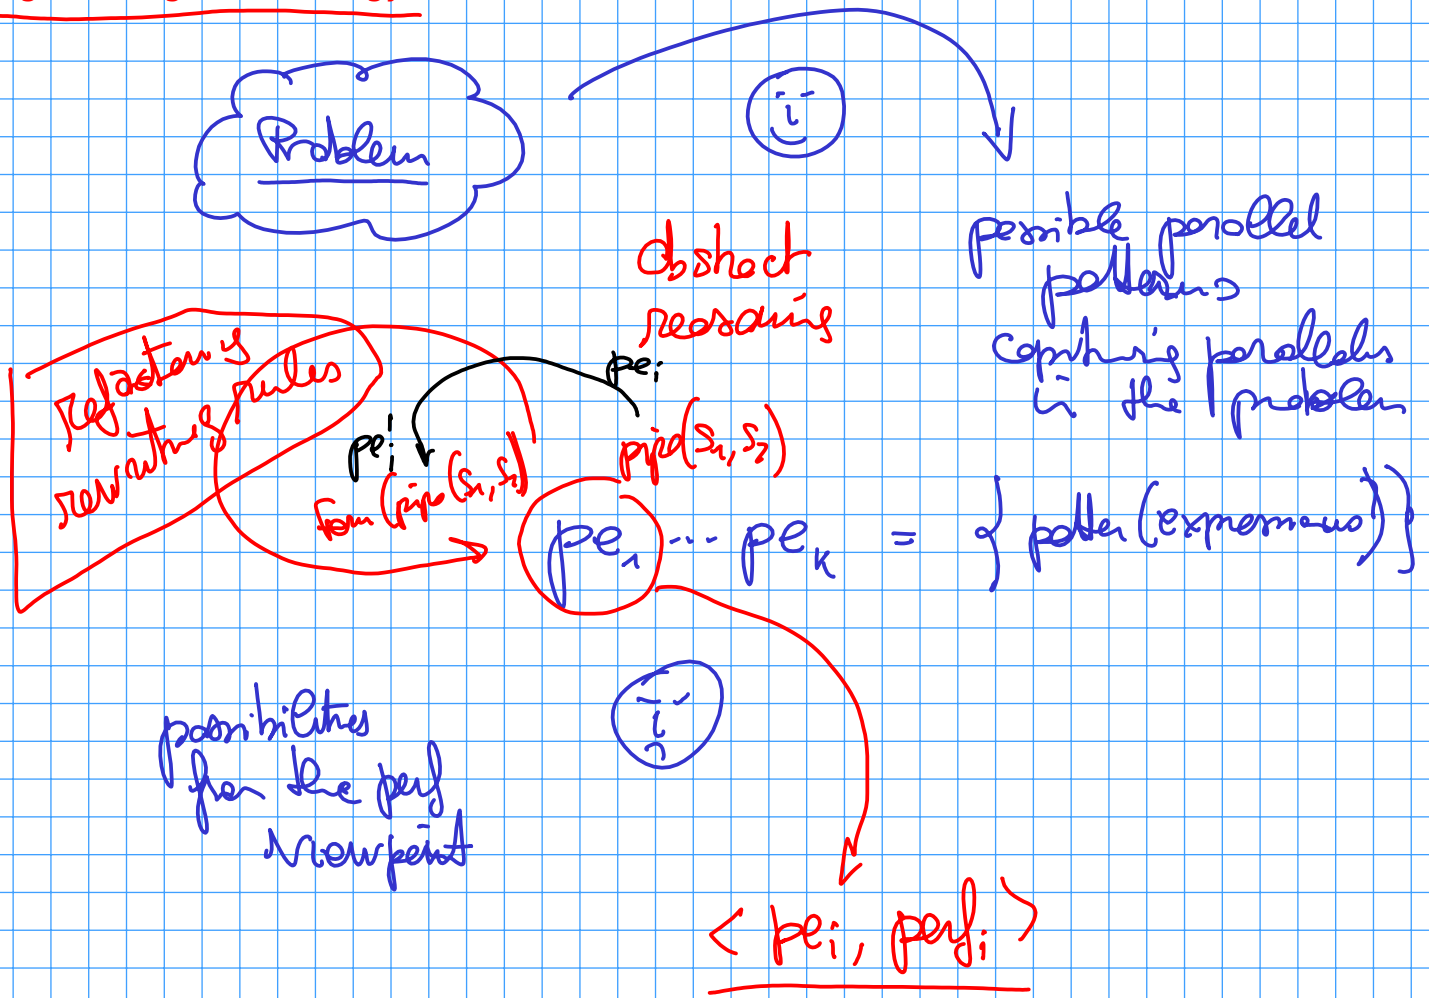 Problem
possible parallel
patterns
capturing parallelism
in the problem
abstract
reasoning
refactoring
rewriting rules
pei
pei
pipe(S1, S2)
farm(pipe(S1, S2))
pe1 ... pek = { patter(expressions) }
possibilities
from the perf
viewpoint
< pei, perfi >